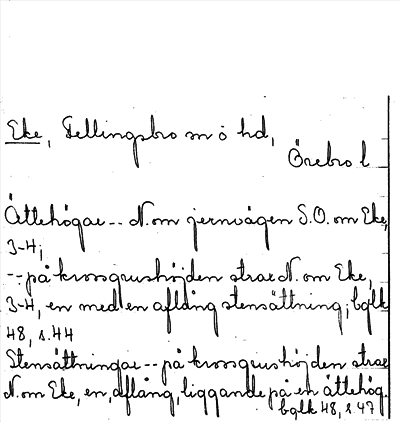 Eke, Fellingsbro sn o hd,
Örebro l
Ättehögar -- N.om jernvägen S.O. om Eke,
3-4;
-- på krossgrushöjden strax N. om Eke,
3-4, en med en aflång stensättning; bglk
48, s.44
Stensättningar -- på krossgrushöjden strax
N.om Eke, en, aflång, liggande på en ättehög.
bglk 48, s 47